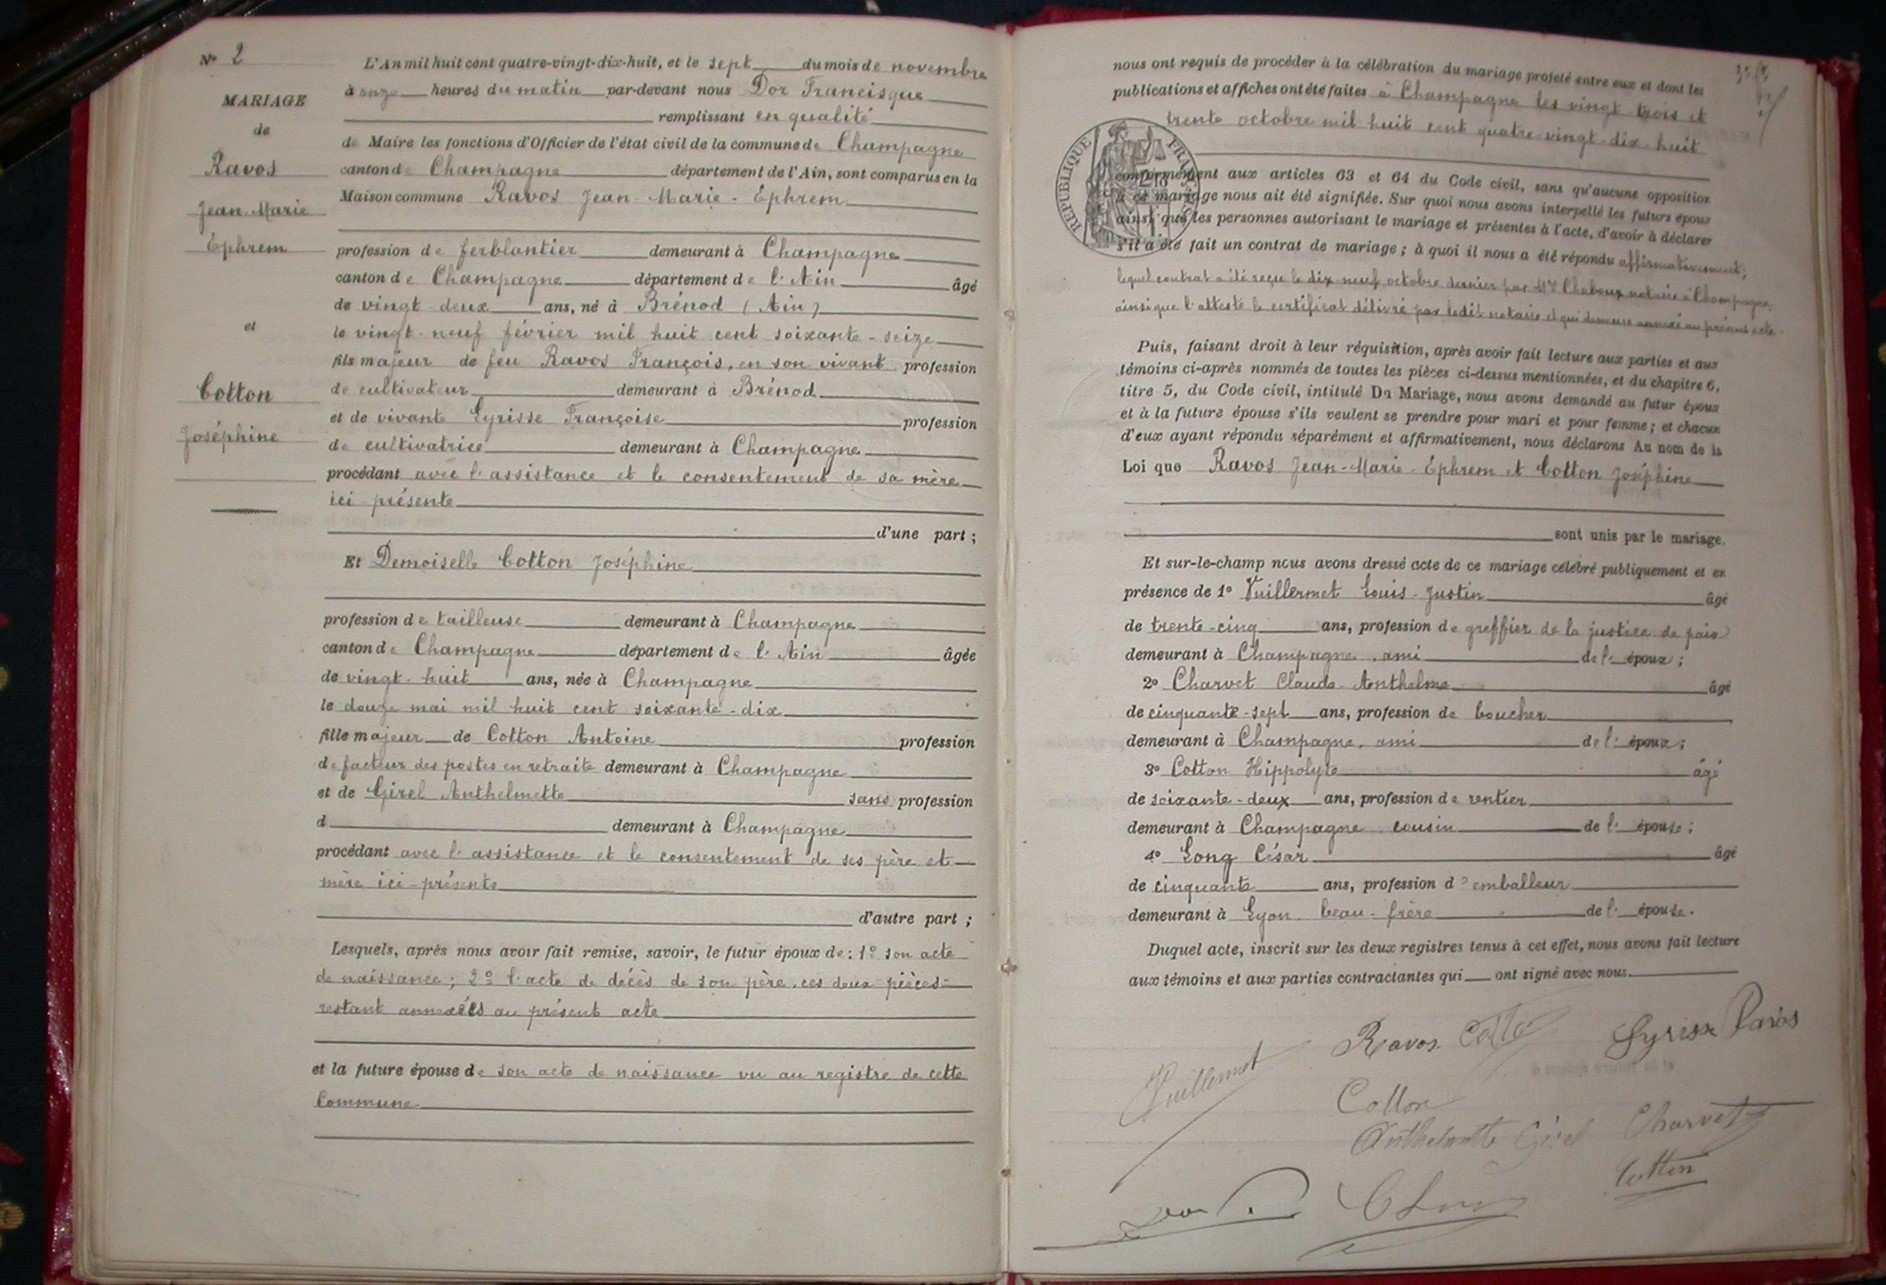 N° 2
MARIAGE
de
Ravos
Jean-Marie
Éphrem
et
Cotton
Joséphine
L'An mil huit cent quatre-vingt-dix-huit, et le sept du mois de novembre
à onze heures du matin par-devant nous Dor Francisque
remplissant en qualité
de Maire les fonctions d'Officier de l'état civil de la commune de Champagne
canton de Champagne département de l'Ain, sont comparus en la
Maison commune Ravos Jean-Marie-Éphrem
profession de ferblantier demeurant à Champagne
canton de Champagne département de l'Ain âgé
de vingt-deux ans, né à Brénod (Ain)
le vingt-neuf février mil huit cent soixante-seize
fils majeur de feu Ravos François, en son vivant profession
de cultivateur demeurant à Brénod
et de vivante Lyrisse Françoise profession
de cultivatrice demeurant à Champagne
procédant avec l'assistance et le consentement de sa mère
ici présente
d'une part ;
Et Demoiselle Cotton Joséphine
profession de tailleuse demeurant à Champagne
canton de Champagne département de l'Ain âgée
de vingt-huit ans, née à Champagne
le douze mai mil huit cent soixante-dix
fille majeur de Cotton Antoine profession
de facteur des postes en retraite demeurant à Champagne
et de Girel Anthelmette sans profession
d demeurant à Champagne
procédant avec l'assistance et le consentement de ses père et
mère ici-présents
d'autre part ;
Lesquels, après nous avoir fait remise, savoir, le futur époux de : 1° son acte
de naissance ; 2° l'acte de décès de son père, ces deux pièces
restant annexées au présent acte
et la future épouse de son acte de naissance vu au registre de cette
Commune
nous ont requis de procéder à la célébration du mariage projeté entre eux et dont les
publications et affiches ont été faites à Champagne les vingt trois et
trente octobre mil huit cent quatre-vingt-dix-huit
RÉPUBLIQUE FRANÇAISE
conformément aux articles 63 et 64 du Code civil, sans qu'aucune opposition
à ce mariage nous ait été signifiée. Sur quoi nous avons interpellé les futurs époux
ainsi que les personnes autorisant le mariage et présentes à l'acte, d'avoir à déclarer
s'il a été fait un contrat de mariage ; à quoi il nous a été répondu affirmativement,
lequel contrat a été reçu le dix neuf octobre dernier par Me Chaboux notaire à Champagne
ainsi que l'atteste le certificat délivré par ledit notaire et qui demeure annexé au présent acte.
Puis, faisant droit à leur réquisition, après avoir fait lecture aux parties et aux
témoins ci-après nommés de toutes les pièces ci-dessus mentionnées, et du chapitre 6,
titre 5, du Code civil, intitulé Du Mariage, nous avons demandé au futur époux
et à la future épouse s'ils veulent se prendre pour mari et pour femme ; et chacun
d'eux ayant répondu séparément et affirmativement, nous déclarons Au nom de la
Loi que Ravos Jean-Marie-Éphrem et Cotton Joséphine
sont unis par le mariage.
Et sur-le-champ nous avons dressé acte de ce mariage célébré publiquement et en
présence de 1° Vuillermet Louis-Justin âgé
de trente-cinq ans, profession de greffier de la justice de paix
demeurant à Champagne, ami de l' époux ;
2° Charvet Claude-Anthelme âgé
de cinquante-sept ans, profession de boucher
demeurant à Champagne, ami de l' époux ;
3° Cotton Hippolyte âgé
de soixante-deux ans, profession de rentier
demeurant à Champagne cousin de l' épouse ;
4° Long César âgé
de cinquante ans, profession d'emballeur
demeurant à Lyon beau-frère de l' épouse.
Duquel acte, inscrit sur les deux registres tenus à cet effet, nous avons fait lecture
aux témoins et aux parties contractantes qui ont signé avec nous.
Ravos Cotton Lyrisse Ravos
Vuillermet
Cotton
Anthelmette Girel Charvet
Cotton